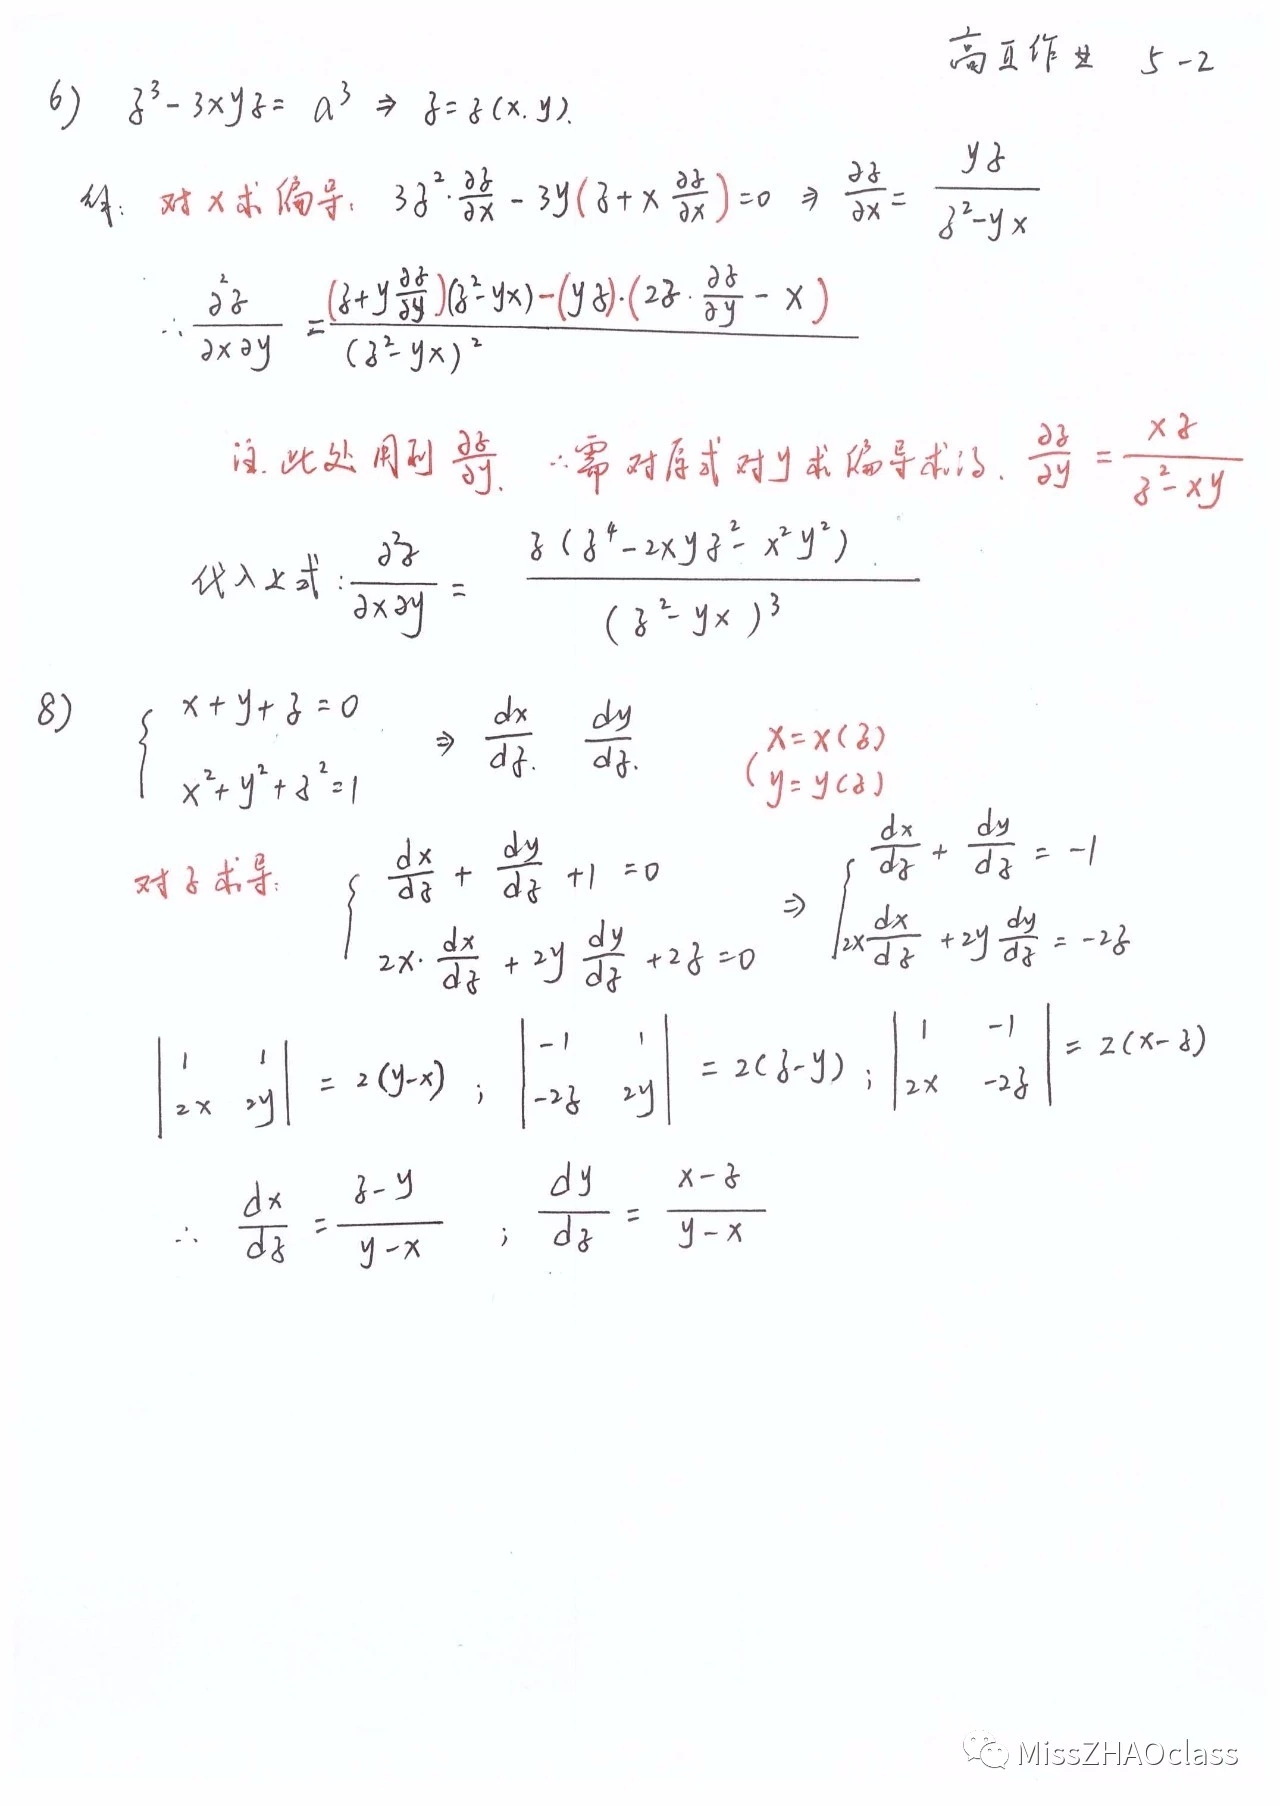 高五作业 5-2
6) z³-3xyz= a³ ⇒ z=z(x.y).
解: 对x求偏导: 3z²·∂z/∂x - 3y(z+x ∂z/∂x)=0 ⇒ ∂z/∂x = yz/(z²-yx)
∴ ∂²z/∂x∂y = (z+y ∂z/∂y)(z²-yx)-(yz)·(2z·∂z/∂y - x)/(z²-yx)²
注.此处用到 ∂z/∂y. ∴需对原式对y求偏导求得. ∂z/∂y = xz/(z²-xy)
代入上式: ∂²z/∂x∂y = z(z⁴-2xyz²-x²y²)/(z²-yx)³
8) { x+y+z=0 x²+y²+z²=1 ⇒ dx/dz. dy/dz. ( x=x(z) y=y(z)
对z求导: { dx/dz + dy/dz +1 =0 2x·dx/dz + 2y dy/dz +2z=0 ⇒ { dx/dz + dy/dz = -1 2x dx/dz +2y dy/dz = -2z
|1 1 2x 2y| = 2(y-x) ; |-1 1 -2z 2y| = 2(z-y) ; |1 -1 2x -2z| = 2(x-z)
∴ dx/dz = z-y/y-x ; dy/dz = x-z/y-x
MissZHAOclass